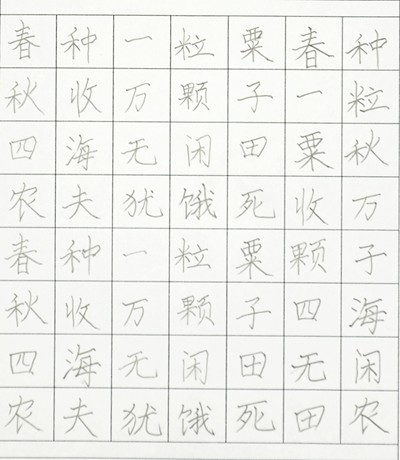 春种一粒粟春种
秋收万颗子一粒
四海无闲田粟秋
农夫犹饿死收万
春种一粒粟颗子
秋收万颗子四海
四海无闲田无闲
农夫犹饿死田农